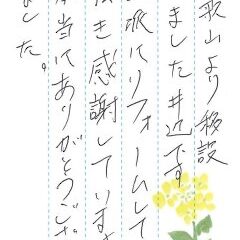 歌山より移設
ました井辺です
派にリフォームして
き感謝しています
当にありがとうござ
した。